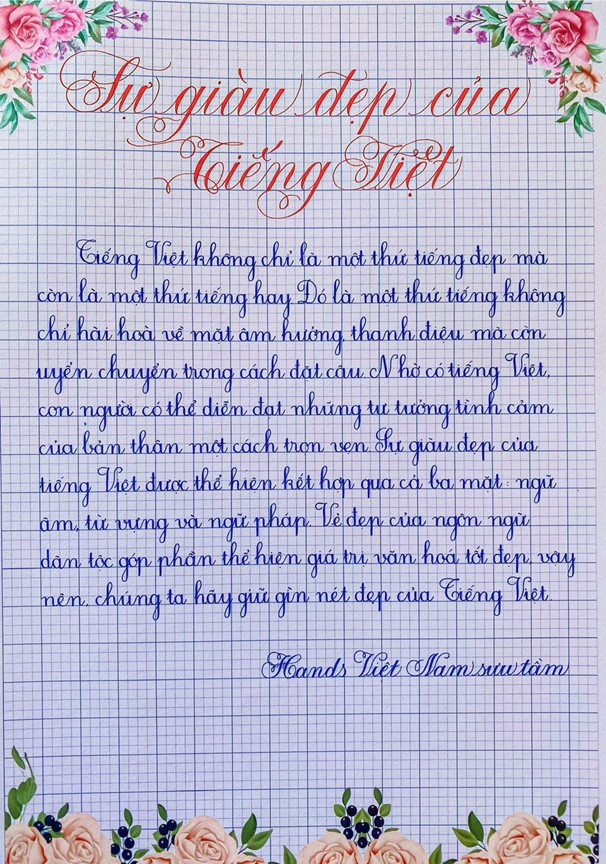 Sự giàu đẹp của
Tiếng Việt
Tiếng Việt không chỉ là một thứ tiếng đẹp mà
còn là một thứ tiếng hay. Đó là một thứ tiếng không
chỉ hài hoà về mặt âm hưởng, thanh điệu mà còn
uyển chuyển trong cách đặt câu. Nhờ có tiếng Việt,
con người có thể diễn đạt những tư tưởng, tình cảm
của bản thân một cách trọn vẹn. Sự giàu đẹp của
tiếng Việt được thể hiện kết hợp qua cả ba mặt: ngữ
âm, từ vựng và ngữ pháp. Vẻ đẹp của ngôn ngữ
dân tộc góp phần thể hiện giá trị văn hoá tốt đẹp, vậy
nên, chúng ta hãy giữ gìn nét đẹp của Tiếng Việt.
Hands Việt Nam sưu tầm